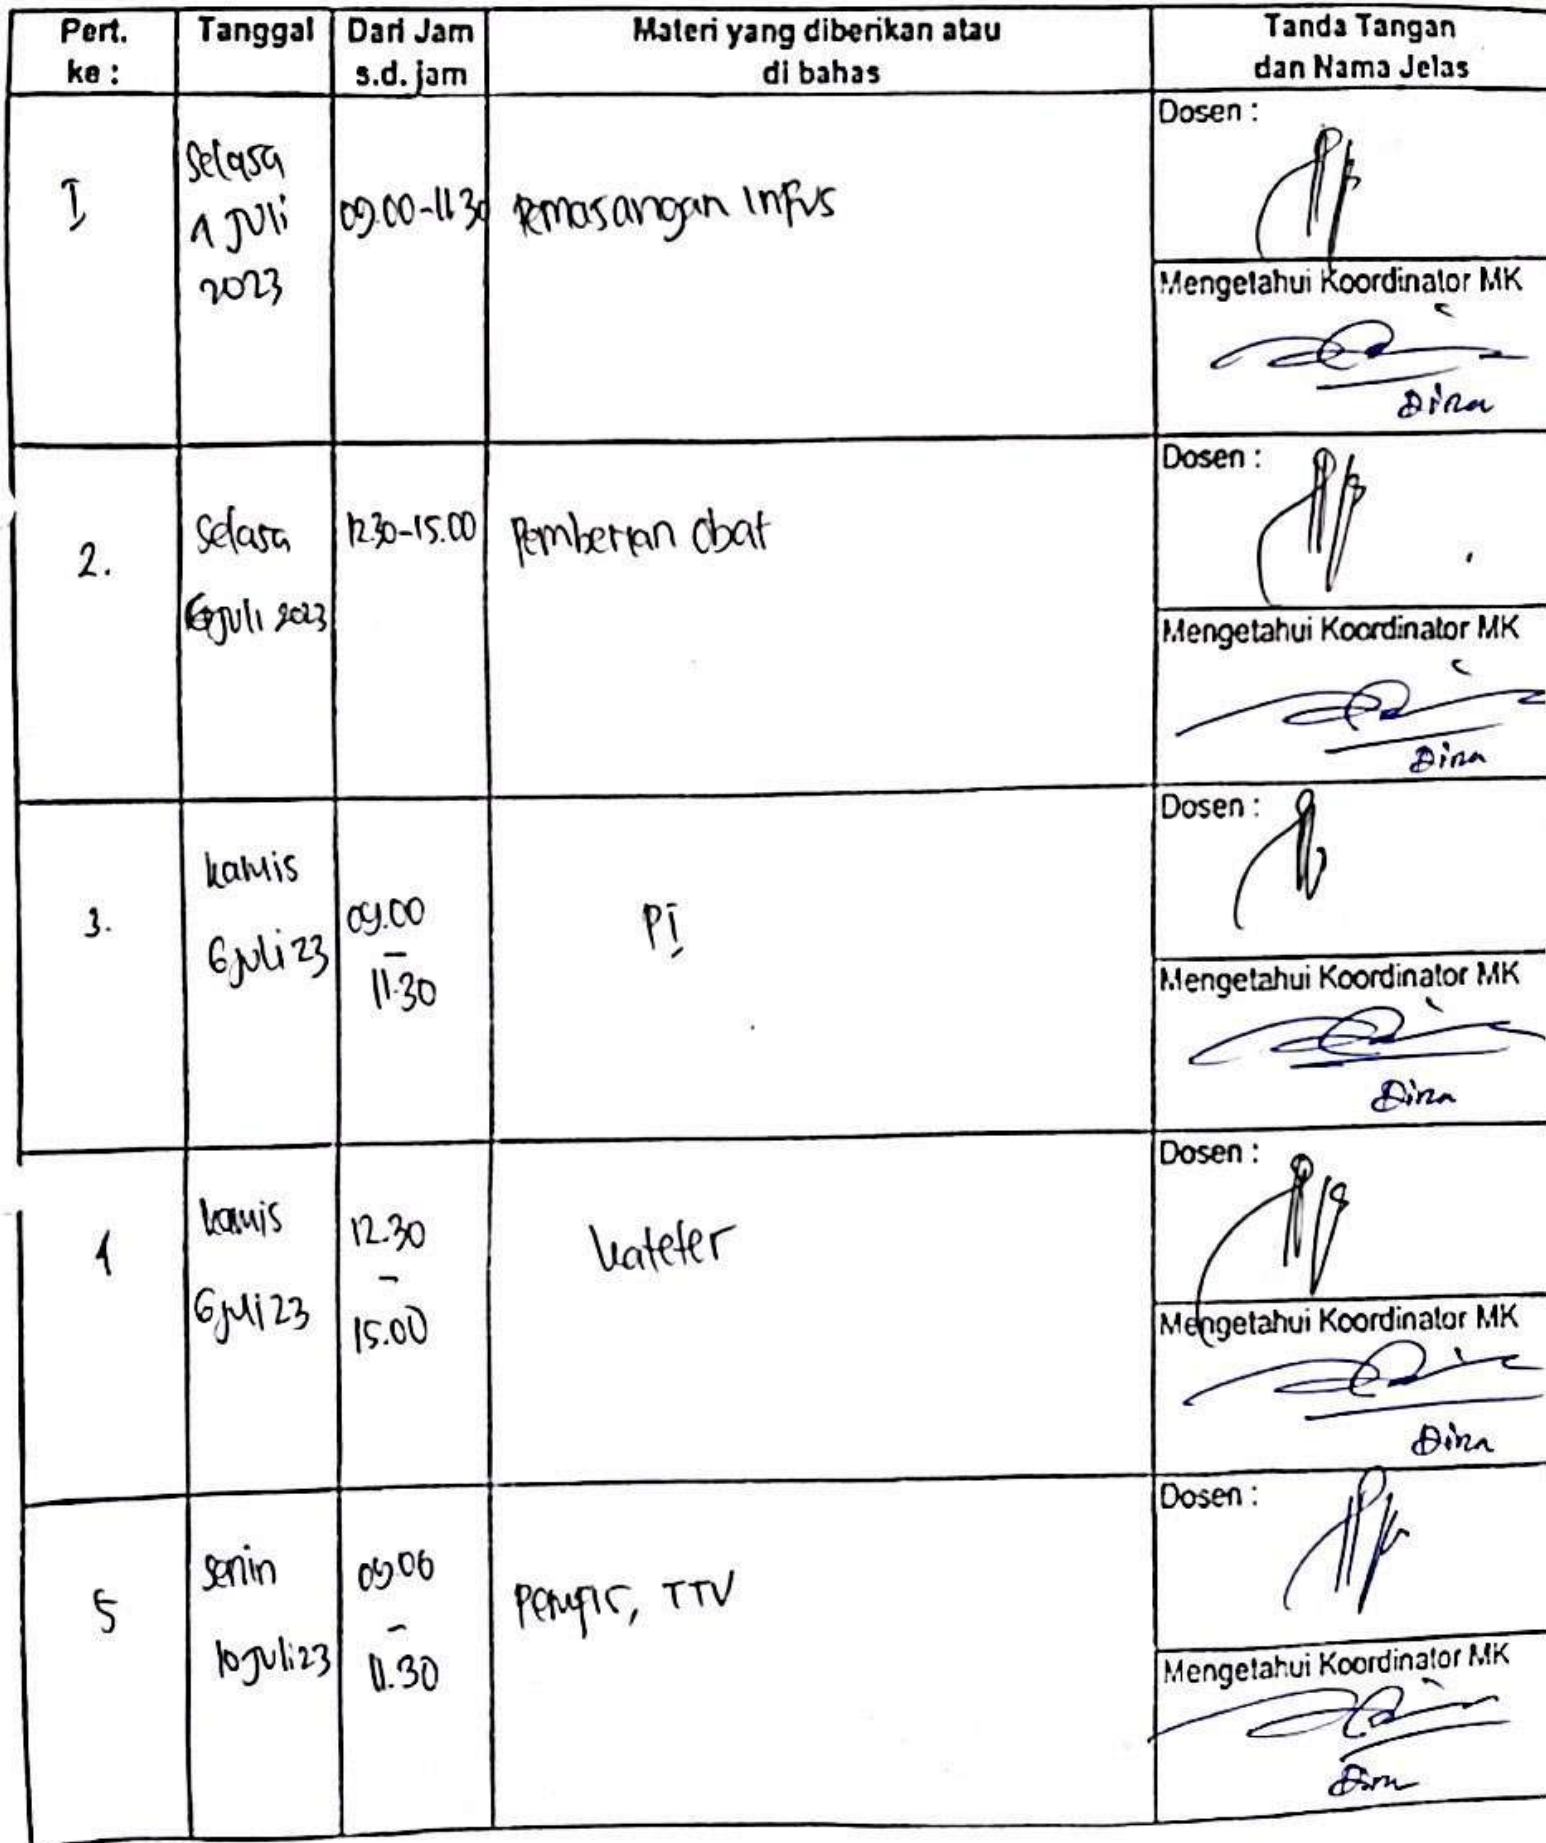 Pert. ke :
Tanggal
Dari Jam s.d. jam
Materi yang diberikan atau di bahas
Tanda Tangan dan Nama Jelas
I
Selasa
4 Juli
2023
09.00-11 30
Pemasangan Infus
Dosen :
Mengetahui Koordinator MK
Dina
2.
Selasa
Juli 2023
12.30-15.00
Pemberian Obat
Dosen :
Mengetahui Koordinator MK
Dina
3.
kamis
6 Juli 23
09.00
-
11.30
PI
Dosen :
Mengetahui Koordinator MK
Dina
4
kamis
6 Juli 23
12.30
-
15.00
kateter
Dosen :
Mengetahui Koordinator MK
Dina
5
Senin
10 Juli 23
09.00
-
11.30
TTV
Dosen :
Mengetahui Koordinator MK
Dina